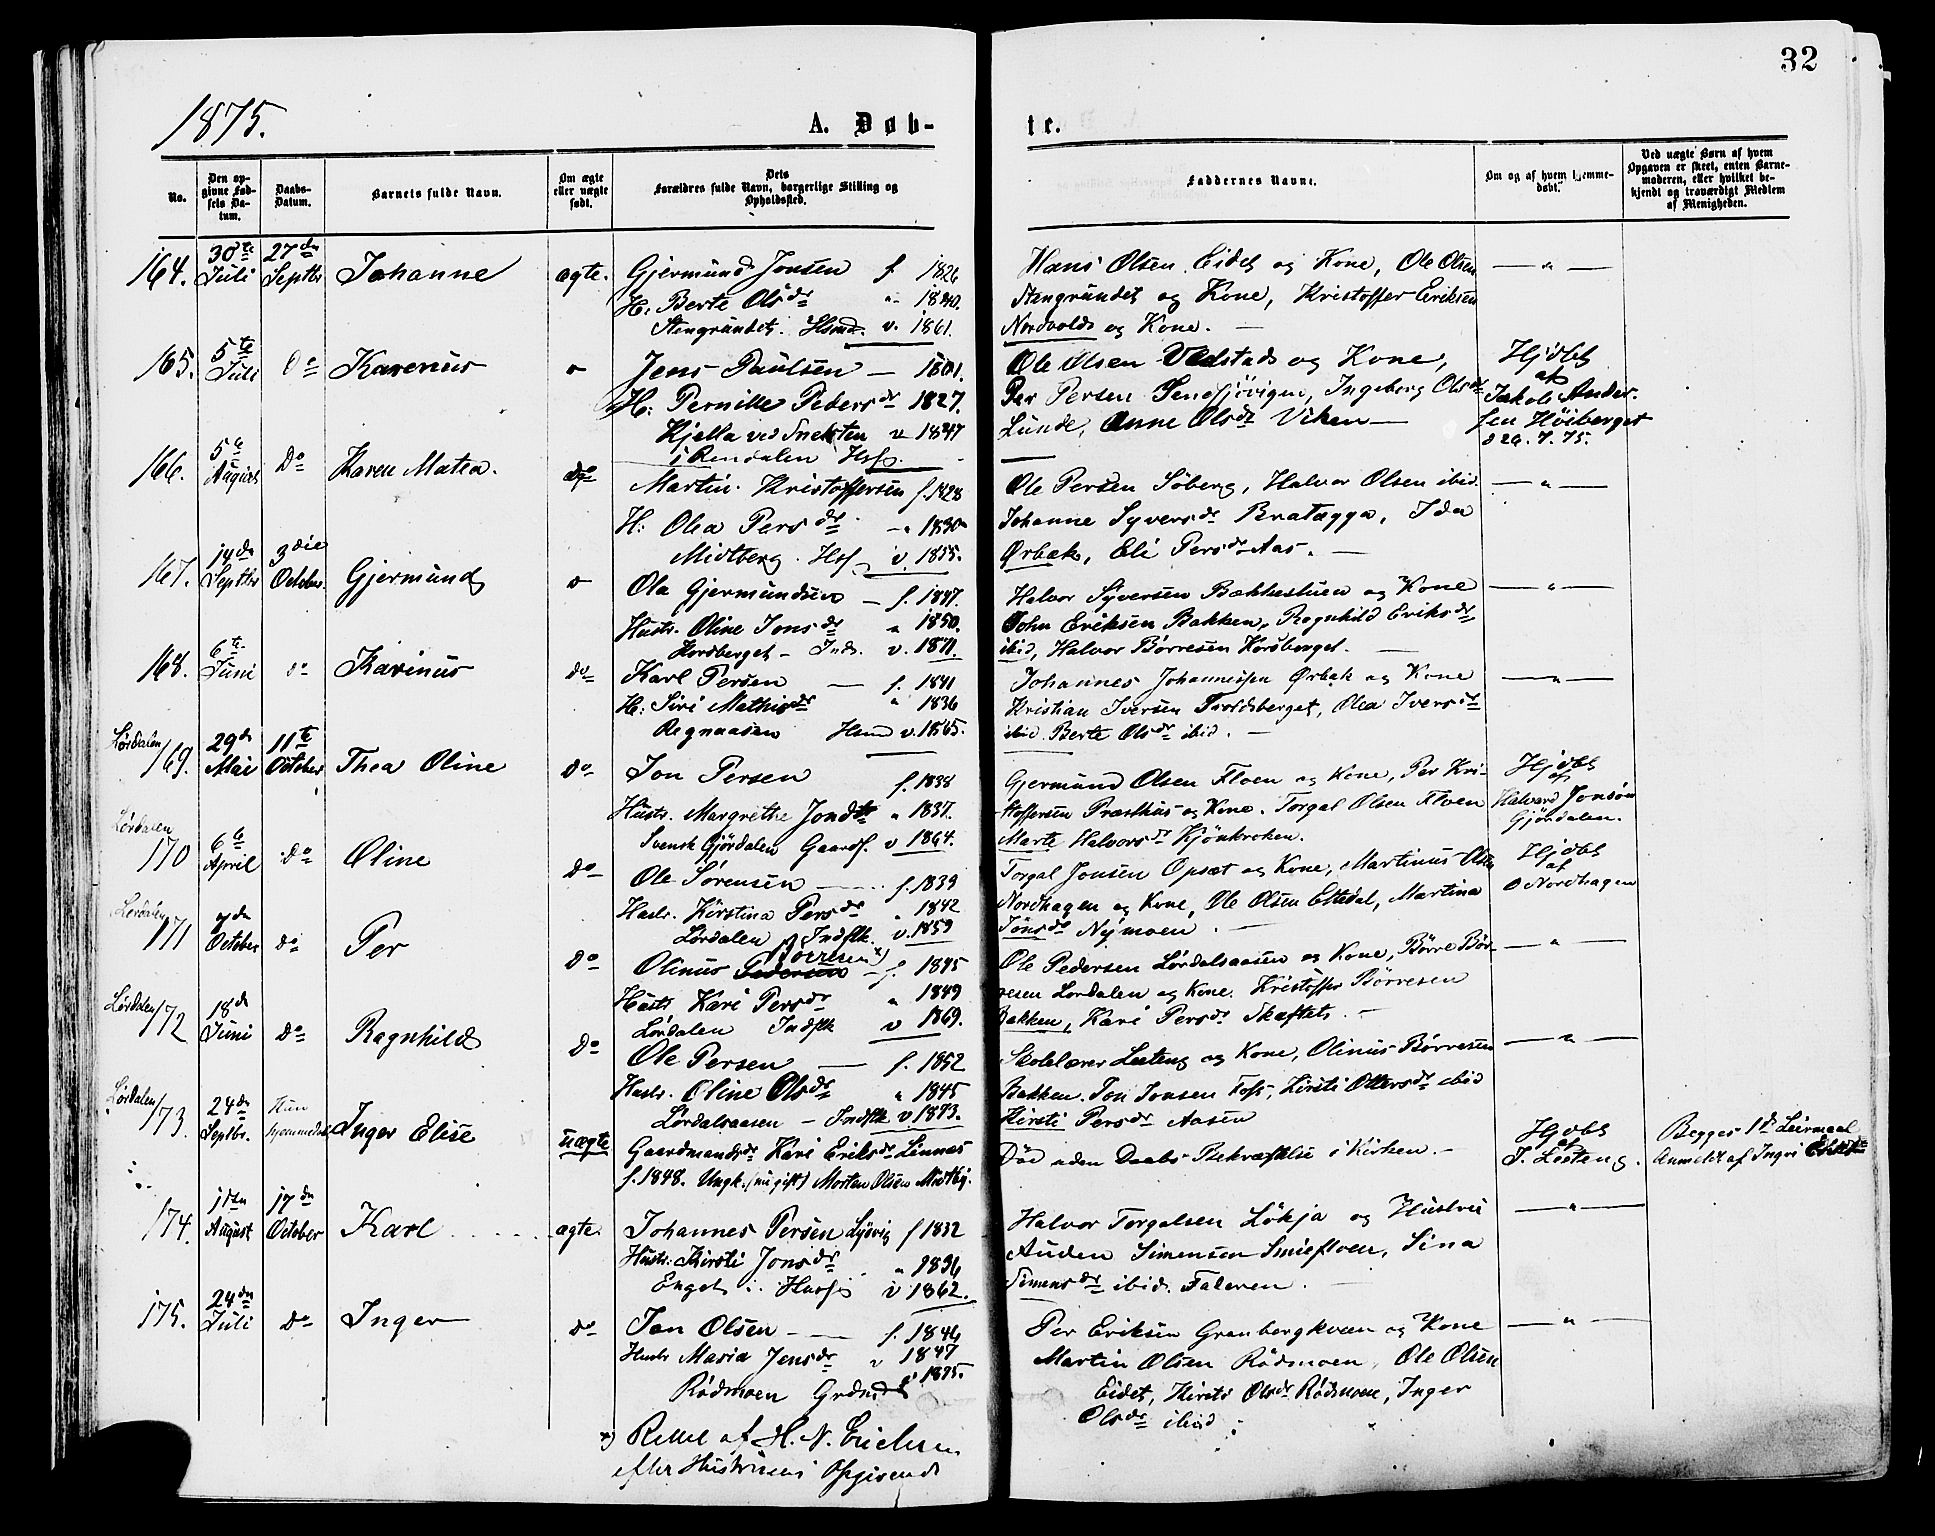 32
1875.
A. Døb-
te.
No.
Den op-
givne Fød-
sels Da-
tum.
Daabs-
Datum.
Barnets fulde Navn.
Om ægte
eller uægte
født.
Dets
Forældres fulde Navn, borgerlige Stilling og
Opholdssted.
Faddernes Navne.
Om og af hvem hjemme-
døbt.
Ved uægte Børn af hvem
Opgaven er skeet, enten Barne-
moderen, eller hvilket be-
kjendt og troværdigt Medlem
af Menigheden.
164. 30te Juli 27de Septbr Johanne ægte.
Gjermund Jonsen f. 1826
H. Berte Olsdr " 1840.
Stengrundet. Hsmd. v. 1861.
Hans Olsen Eidet og Kone, Ole Olsen
Stengrundet og Kone, Kristoffer Eriksen
Nordvolds og Kone. —
— " —
165. 5te Juli Do Karenus
Jens Paulsen — 1801.
H: Pernille Pedersdr 1827.
Kjella ved Sneksten v 1847
i Rendalen Hsf.
Ole Olsen Vedstad og Kone,
Per Persen Ingeborg Olsdr
Lunde, Anne Olsdr Viken —
Hjdbt
af
Jakob Ander-
sen Høiberget
d 26. 7. 75.
166. 5te August Do Karen Matea. do
Martin Kristoffersen f. 1828
H: Olea Persdr " 1830
Midtberg. Hsf v. 1855.
Ole Persen Søberg, Halvor Olsen ibid.
Johanne Syversdr Bratægga, Ida
Ørbæk, Eli Persdr Aas. —
— " —
167. 14de Septbr 3die October. Gjermund
Ola Gjermundsen — f. 1847.
Hustr. Oline Jonsdr " 1850.
Korsberget — Inds. v. 1871.
Halvor Syversen Bækkeluen og Kone
John Eriksen Bakken, Ragnhild Eriksdr
ibid, Halvor Børresen Korsberget. —
— " —
168. 6te Juni do Karinus do
Karl Persen — f. 1841
H: Siri Mathisdr " 1836
Regnaasen Hsmd v. 1865.
Johannes Johannessen Ørbæk og Kone
Kristian Iversen Troldsberget, Olea Iversdr
ibid. Berte Olsdr ibid. —
— " —
Lørdalen
169. 29de Mai 11te October Thea Oline Do
Jon Persen f. 1838
Hustr. Margrethe Jonsdtr " 1837.
Svensk Gjørdalen Gaardf. v 1864.
Gjermund Olsen Floen og Kone, Per Kri-
stoffersen Præsthus og Kone. Torgal Olsen Floen
Marte Halvorsdr Kjønkroken.
Hjdbt
af
Halvard Jonsøn
Gjørdalen.
Lørdalen
170 6te April Do Oline Do
Ole Sørensen — f. 1839
Hustr. Kirstina Persdr " 1842
Lørdalen Indflk. v. 1859
Torgal Jonsen Opsæt og Kone, Martinus Olsen
Nordhagen og Kone, Ole Olsen Eltedal, Martina
Jonsdr Nymoen. —
Hjdbt
af
O Nordhagen
Lørdalen
171 7de October Do Per Do
Børresen x)
Olinus Pedersen — f. 1845
Hustr. Kari Persdr " 1849
Lørdalen Indflk v 1869.
Ole Pedersen Lørdalsaasen og Kone, Børre Bør-
resen Lørdalen og Kone. Kristoffer Børresen
Bakken, Kari Persdr Skaftet. —
— " —
Lørdalen
172 18de Juni Do Ragnhild Do
Ole Persen — f. 1852
Hustr. Oline Olsdr " 1845
Lørdalsaasen — Indflk v 1873.
Skolelærer Lesteng og Kone, Olinus Børresen
Bakken. Jon Jonsen Foss, Kirsti Ottersdr ibid
Kirsti Persdr Aasen
— " —
Lørdalen
173. 24de Septbr. Kun hjemmedøbt Inger Elise uægte
Gaardmandsdr Kari Eriksdr Linnæs
f. 1848. Ungk. (nu gift) Morten Olsen Midtbg.
Død uden Daabs-Bekræftelse i Kirken. —
Hjdbt
af
J. Lesteng.
Begges 1ste Leirmaal
Anmeldt af Ingri
174. 11te August 17de October Karl ægte.
Johannes Persen Lysvig f 1832
Hustr. Kirsti Jonsdr " 1836
Enget Husf v 1862.
Halvor Torgalsen Løkja og Hustru
Auden Simensen Smiefloen, Sina
Simensdr ibid. Faderen. —
— " —
175. 24de Juli Do Inger do
Jon Olsen — f. 1846
Hustr Maria Jensdr v 1847
Rødmoen Grdmd v 1875.
Per Eriksen Granbergkvæn og Kone
Martin Olsen Rødmoen, Ole Olsen
Eidet, Kirsti Olsdr Rødmoen, Inger
Olsdr ibid
— " —
x) Rettet af H. N. Erichsen
efter Hustruens Opgivende